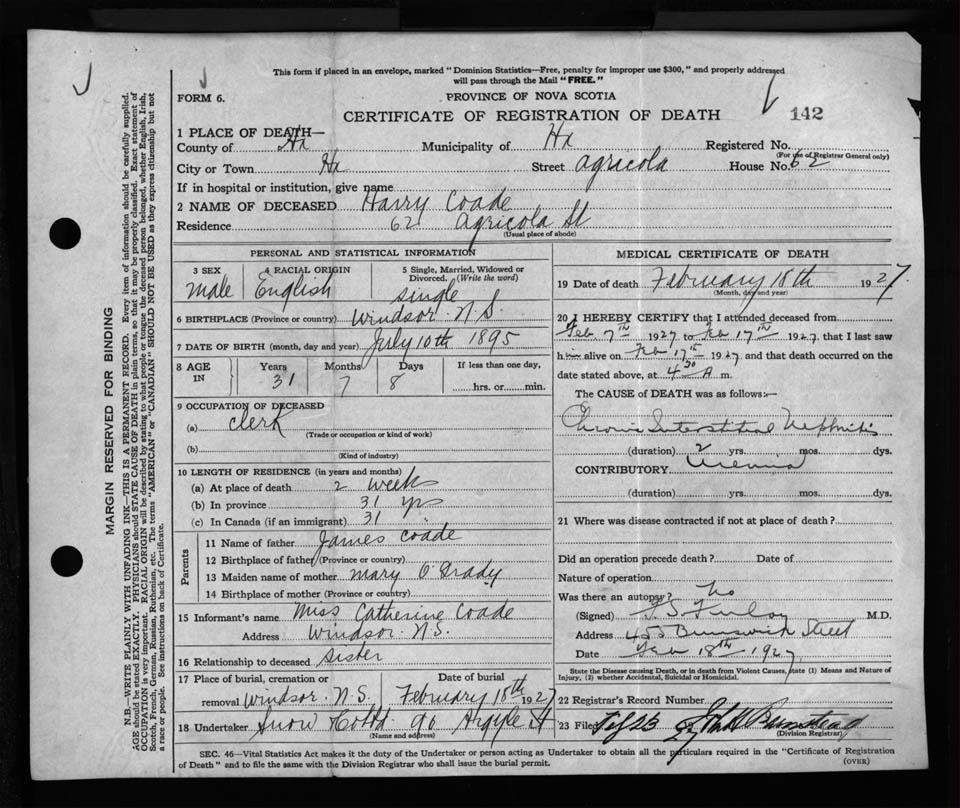 This form if placed in an envelope, marked "Dominion Statistics—Free, penalty for improper use $300," and properly addressed
will pass through the Mail "FREE."
FORM 6.
PROVINCE OF NOVA SCOTIA
CERTIFICATE OF REGISTRATION OF DEATH
142
1 PLACE OF DEATH—
County of Hx Municipality of Hx Registered No.
(For use of Registrar General only)
City or Town Hx Street Agricola House No. 62
If in hospital or institution, give name
2 NAME OF DECEASED Harry Coade
Residence 62 Agricola St
(Usual place of abode)
PERSONAL AND STATISTICAL INFORMATION
3 SEX 4 RACIAL ORIGIN 5 Single, Married, Widowed or
Divorced. (Write the word)
Male English single
6 BIRTHPLACE (Province or country) Windsor N.S.
7 DATE OF BIRTH (month, day and year) July 10th 1895
8 AGE IN Years Months Days If less than one day,
31 7 8 hrs. or min.
9 OCCUPATION OF DECEASED
(a) Clerk
(Trade or occupation or kind of work)
(b)
(Kind of industry)
10 LENGTH OF RESIDENCE (in years and months)
(a) At place of death 2 weeks
(b) In province 31 yrs
(c) In Canada (if an immigrant) 31
Parents
11 Name of father James Coade
12 Birthplace of father (Province or country)
13 Maiden name of mother Mary O'Grady
14 Birthplace of mother (Province or country)
15 Informant's name Miss Catherine Coade
Address Windsor N.S.
16 Relationship to deceased sister
17 Place of burial, cremation or Date of burial
removal Windsor. N.S. February 18th 1927
18 Undertaker Snow 90 Argyle St
(Name and address)
MEDICAL CERTIFICATE OF DEATH
19 Date of death February 18th 1927.
(Month, day and year)
20 I HEREBY CERTIFY that I attended deceased from
Feb. 7th 1927 to Feb 17th 1927 that I last saw
him alive on Feb 17th 1927 and that death occurred on
date stated above, at 4 30 A m.
The CAUSE of DEATH was as follows:—
Chronic Interstitial Nephritis
(duration) 2 yrs. mos. dys.
CONTRIBUTORY Uremia
(duration) yrs. mos. dys.
21 Where was disease contracted if not at place of death?
Did an operation precede death? Date of
Nature of operation
Was there an autopsy? No
(Signed) M.D.
Address 455 Brunswick Street
Date Feb 18th 1927
State the Disease causing Death, or in death from Violent Causes, state (1) Means and Nature of
Injury, (2) whether Accidental, Suicidal or Homicidal.
22 Registrar's Record Number
23 Filed
(Division Registrar)
SEC. 46—Vital Statistics Act makes it the duty of the Undertaker or person acting as Undertaker to obtain all the particulars required in the "Certificate of Registration
of Death" and to file the same with the Division Registrar who shall issue the burial permit.
(OVER)
MARGIN RESERVED FOR BINDING
N.B.—WRITE PLAINLY WITH UNFADING INK—THIS IS A PERMANENT RECORD. Every item of information should be carefully supplied.
AGE should be stated EXACTLY. PHYSICIANS should STATE CAUSE OF DEATH in plain terms, so that it may be properly classified. Exact statement of
OCCUPATION is very important. RACIAL ORIGIN will be described by stating to what people or tongue the deceased person belonged, whether English, Irish,
Scotch, French, German, Russian, Ruthenian, etc. The terms "AMERICAN" or "CANADIAN" SHOULD NOT BE USED as they express citizenship but not
a race or people. See instructions on back of Certificate.